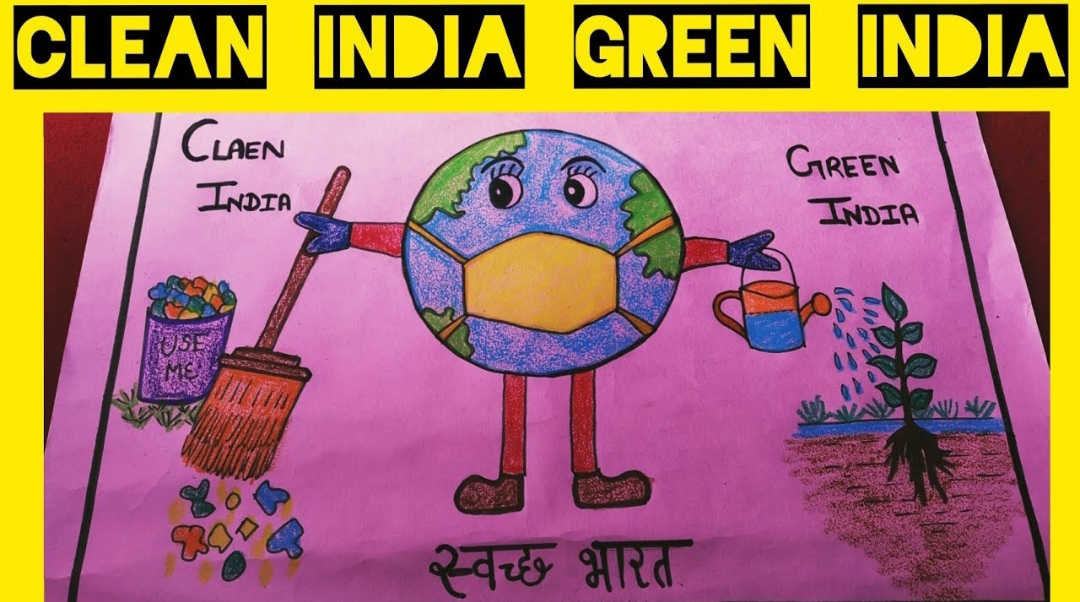 CLEAN INDIA GREEN INDIA
CLAEN
INDIA
GREEN
INDIA
USE
ME
स्वच्छ भारत